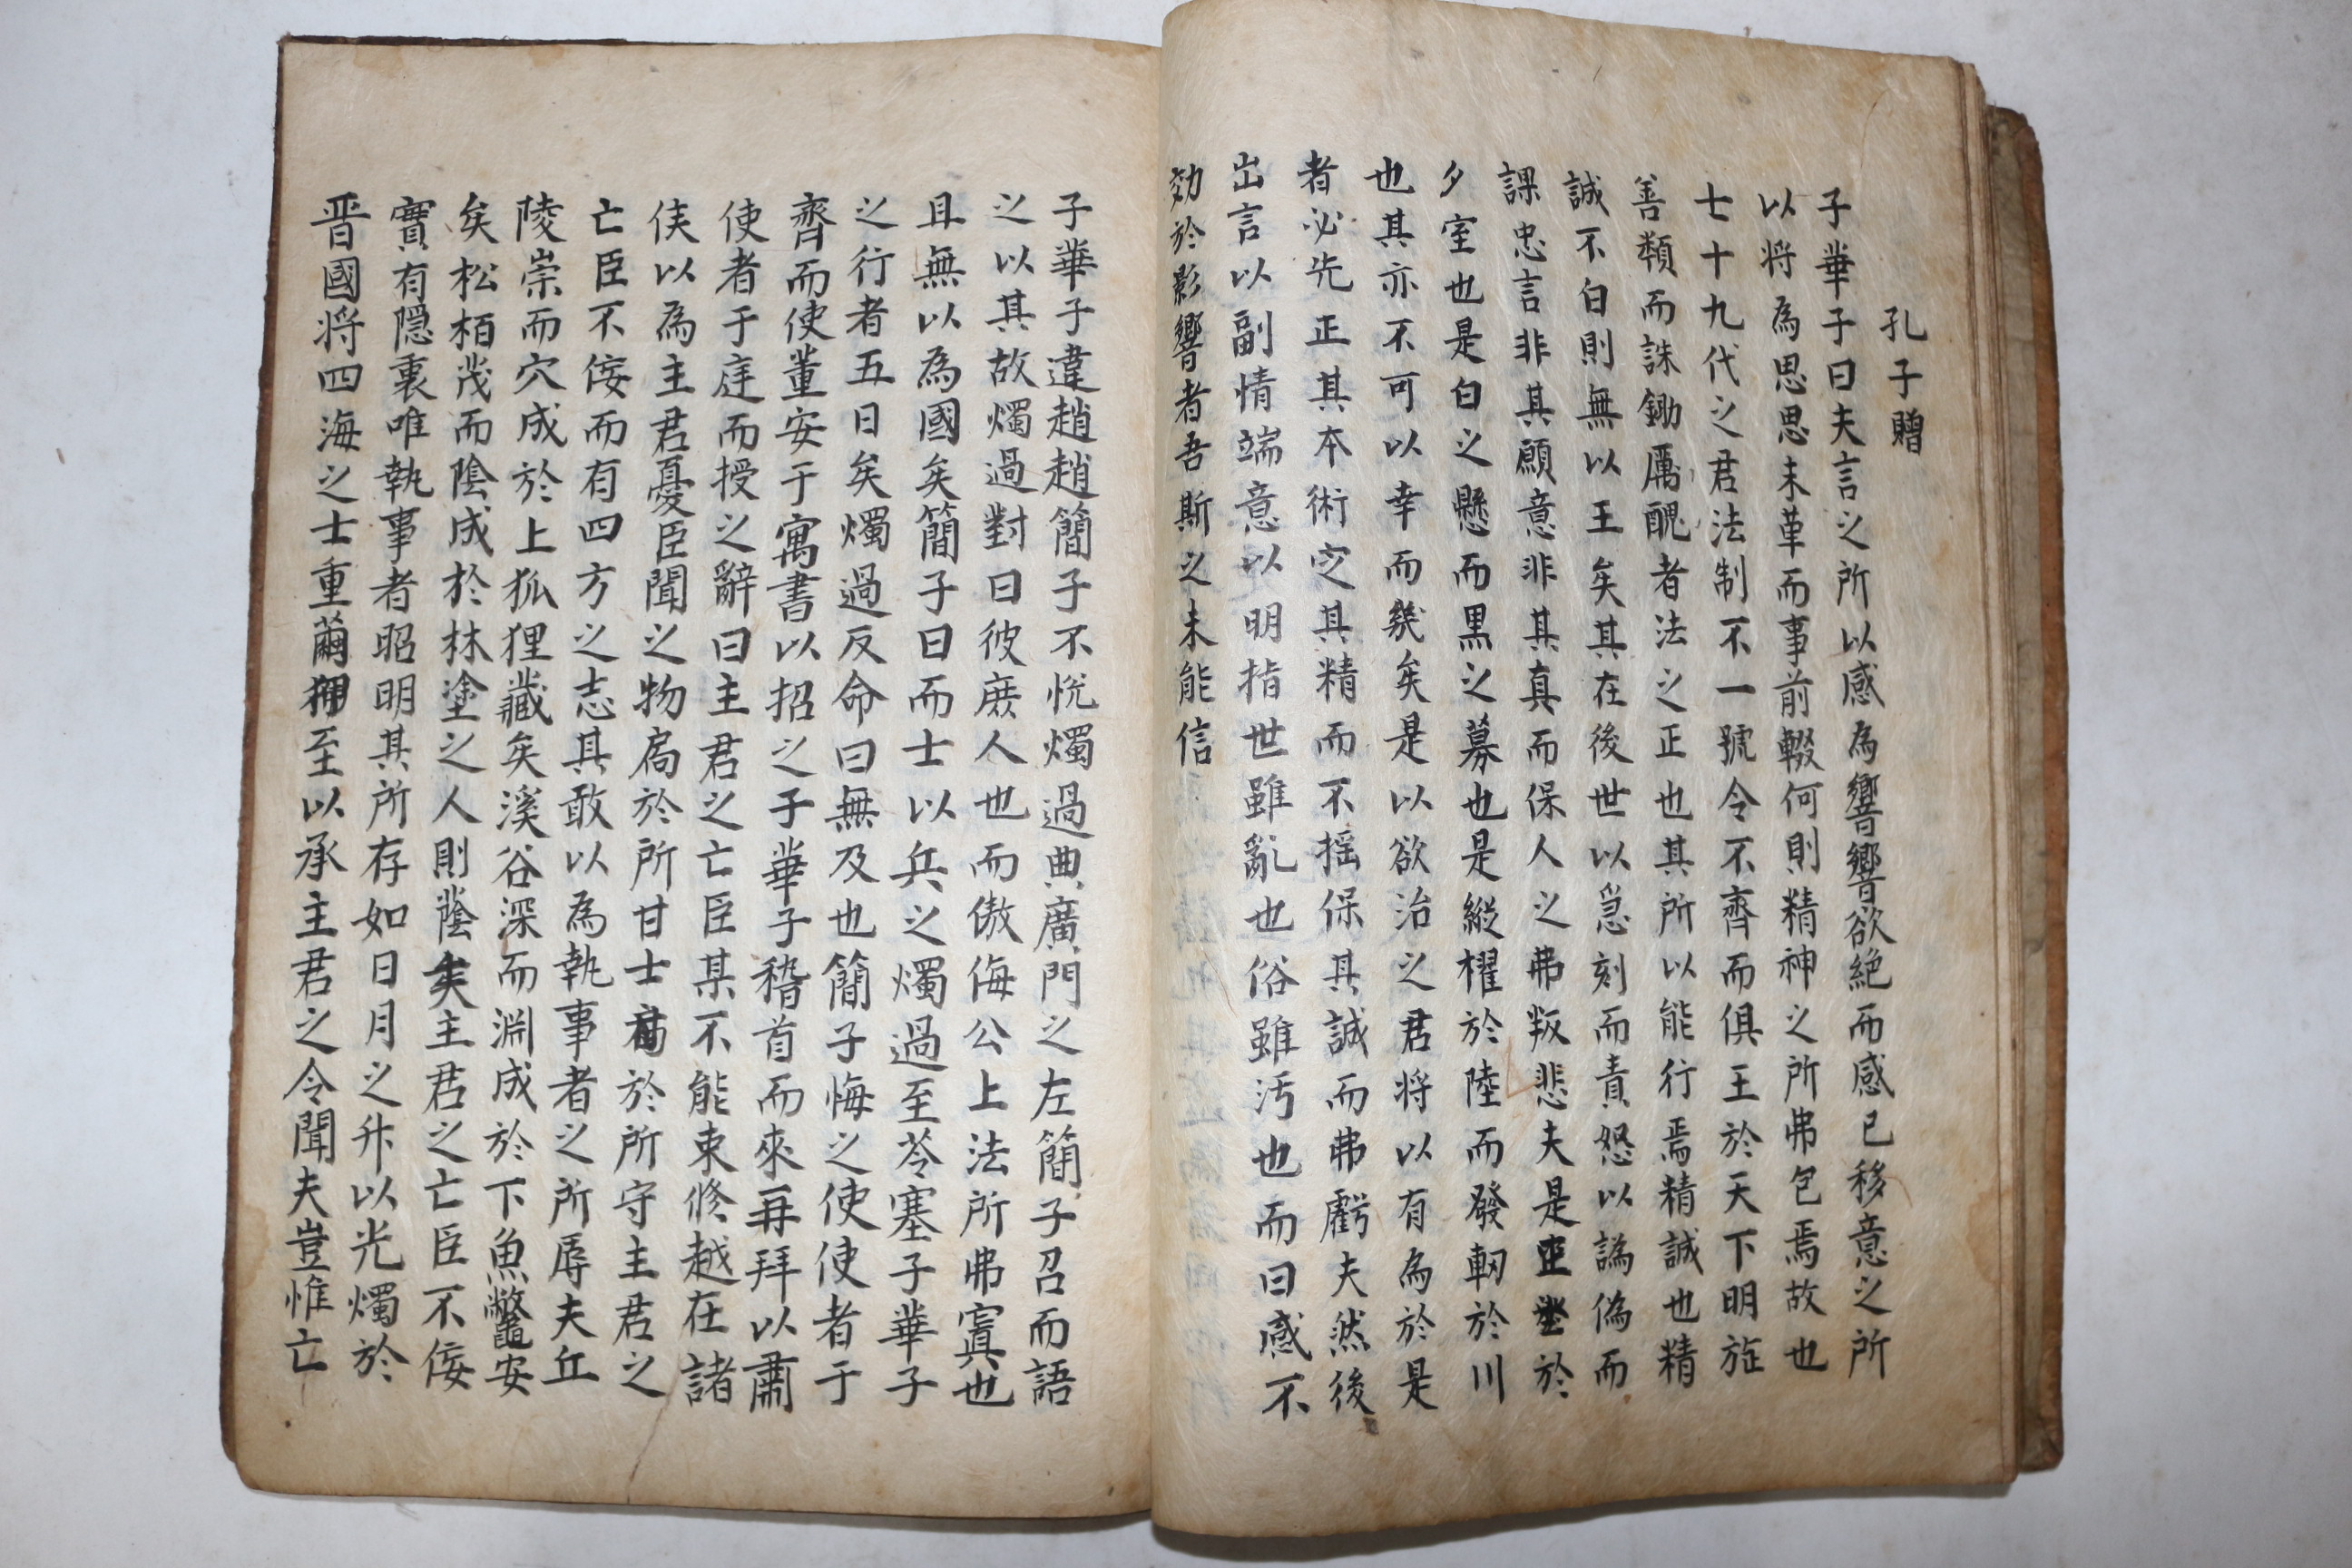 孔子贈
子華子曰夫言之所以感為響響欲絶而感已移意之所
以将為思思未革而事前輟何則精神之所弗包焉故也
七十九代之君法制不一號令不齊而俱王於天下明旌
善類而誅鋤厲醜者法之正也其所以能行焉精誠也精
誠不白則無以王矣其在後世以急刻而責怒以譌偽而
課忠言非其願意非其真而保人之弗叛悲夫是正坐於
夕室也是白之懸而黒之募也是縦櫂於陸而發軔於川
也其亦不可以幸而幾矣是以欲治之君将以有為於是
者必先正其本術定其精而不揺保其誠而弗虧夫然後
出言以副情端意以明指世雖亂也俗雖汚也而曰感不
効於影響者吾斯之未能信
子華子違趙趙簡子不悅燭過典廣門之左簡子召而語
之以其故燭過對曰彼庶人也而傲侮公上法所弗寘也
且無以為國矣簡子曰而士以兵之燭過至苓塞子華子
之行者五日矣燭過反命曰無及也簡子悔之使使者于
齊而使董安于寓書以招之子華子稽首而來再拜以肅
使者于庭而授之辭曰主君之亡臣某不能束修越在諸
侯以為主君憂臣聞之物局於所甘士局於所守主君之
亡臣不侫而有四方之志其敢以為執事者之所辱夫丘
陵崇而穴成於上狐狸藏矣溪谷深而淵成於下魚鼈安
矣松栢茂而陰成於林塗之人則蔭矣主君之亡臣不侫
實有隱衷唯執事者昭明其所存如日月之升以光燭於
晋國将四海之士重繭狎至以承主君之令聞夫豈惟亡